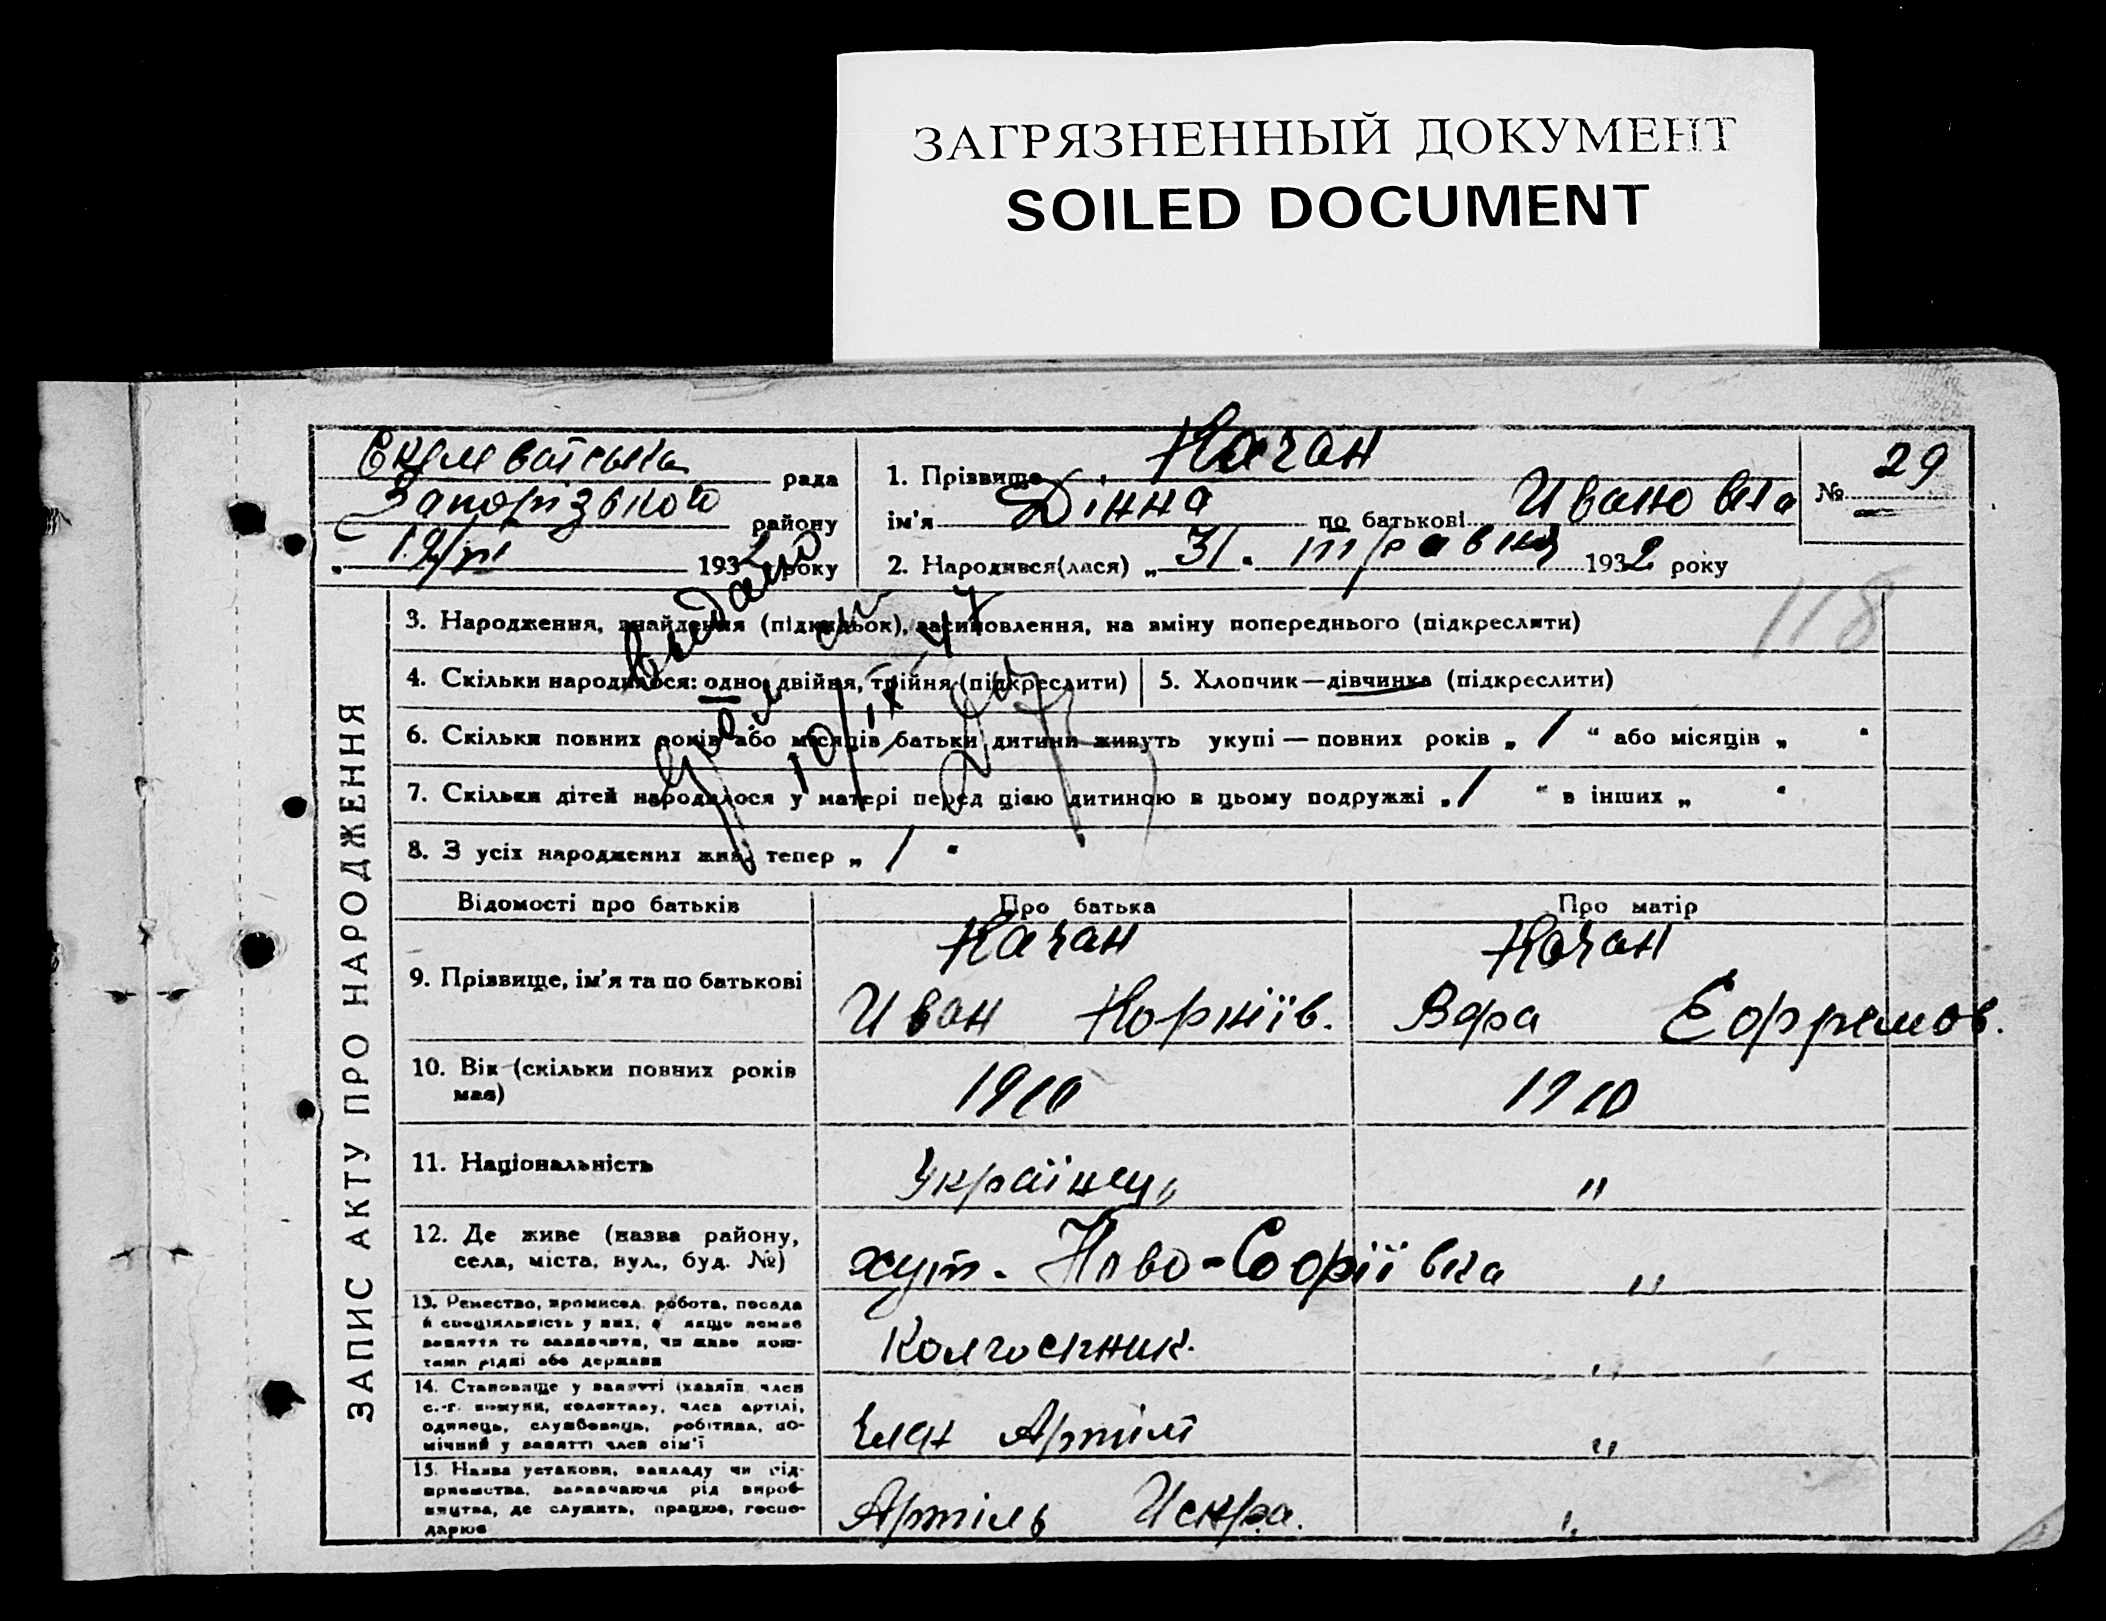 ЗАГРЯЗНЕННЫЙ ДОКУМЕНТ
SOILED DOCUMENT
рада
Запорізької району
19/VI 1932 року
1. Прізвище Качан
ім'я Дінна по батькові Ивановна
2. Народився(лася) „ 31 " травня 1932 року
№ 29
118
ЗАПИС АКТУ ПРО НАРОДЖЕННЯ
3. Народження, знайдення (підкидьок), засиновлення, на зміну попереднього (підкреслити)
4. Скільки народилося: одно, двійня, трійня (підкреслити) 5. Хлопчик—дівчинка (підкреслити)
6. Скільки повних років або місяців батьки дитини живуть укупі — повних років „ / " або місяців „ "
7. Скільки дітей народилося у матері перед цією дитиною в цьому подружжі „ / " в інших „ "
8. З усіх народжених живі тепер „ / "
10/IX 47
Відомості про батьків Про батька Про матір
9. Прізвище, ім'я та по батькові
Качан Качан
Иван Корніїв. Вера Ефремов.
10. Вік (скільки повних років має) 1910 1910
11. Національність Українец „ "
12. Де живе (назва району, села, міста, вул., буд. №) хут. Ново-Софіївка "
13. Ремество, промисел, робота, посада й спеціяльність у них, а якщо немає заняття то зазначити, чи живе коштами рідні або держави Колгоспник. "
14. Становище у занятті (хазяїн, член с.-г. комуни, колективу, член артілі, одинець, службовець, робітник, помічний у занятті член сім'ї Член Артілі "
15. Назва установи, закладу чи підприємства, зазначаючи рід виробництва, де служить, працює, господарює Артіль Искра. "